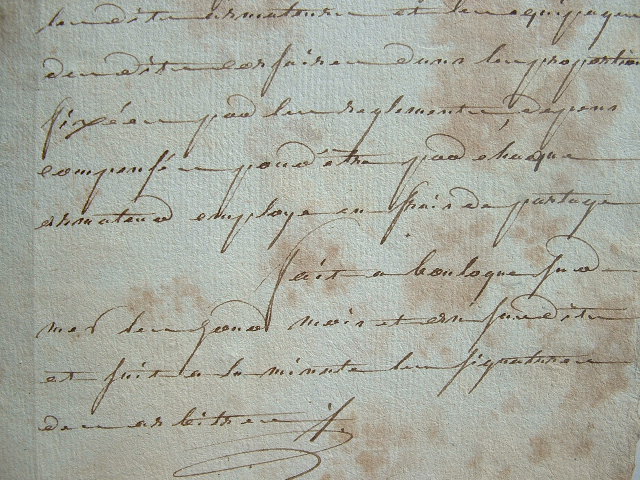 lesdits armateurs et les equipages
desdits corsaires dans les proportion
fixées par les reglements, depens
compensés pour être par chaque
armateur employé en frais de partage
fait a boulogne sur
mer les jour mois et an susdits
et suit a la minute les signatures
des arbitres